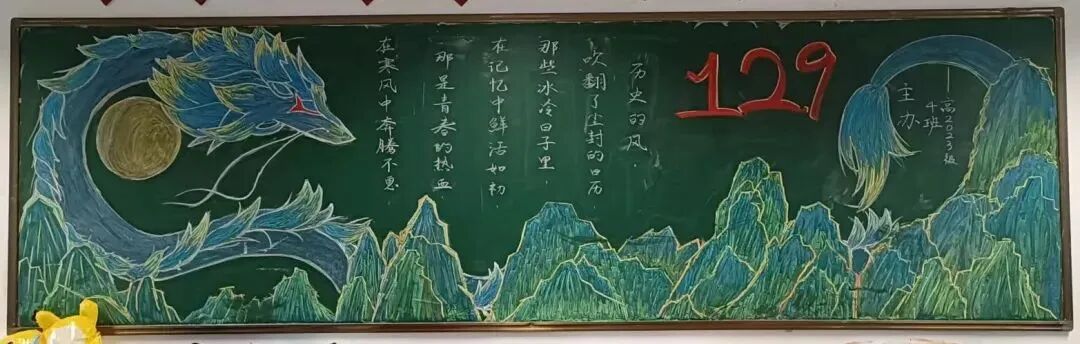 12.9
历史的风，
吹翻了尘封的日历
那些冰冷日子里，
在记忆中鲜活如初，
那是青春的热血
在寒风中奔腾不息.
——高2023级
4班
主办